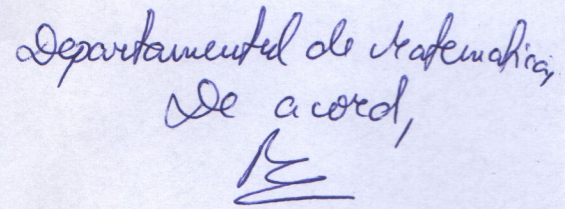 Departamentul de Matematica,
De acord,